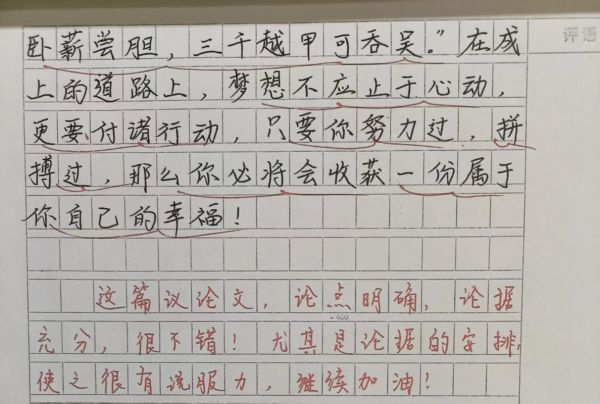 评语
卧薪尝胆，三千越甲可吞吴。”在成
上的道路上，梦想不应止于心动，
更要付诸行动，只要你努力过，拼
搏过，那么你必将会收获一份属于
你自己的幸福！
这篇议论文，论点明确，论据
·400
充分，很不错！尤其是论据的安排，
使之很有说服力，继续加油！